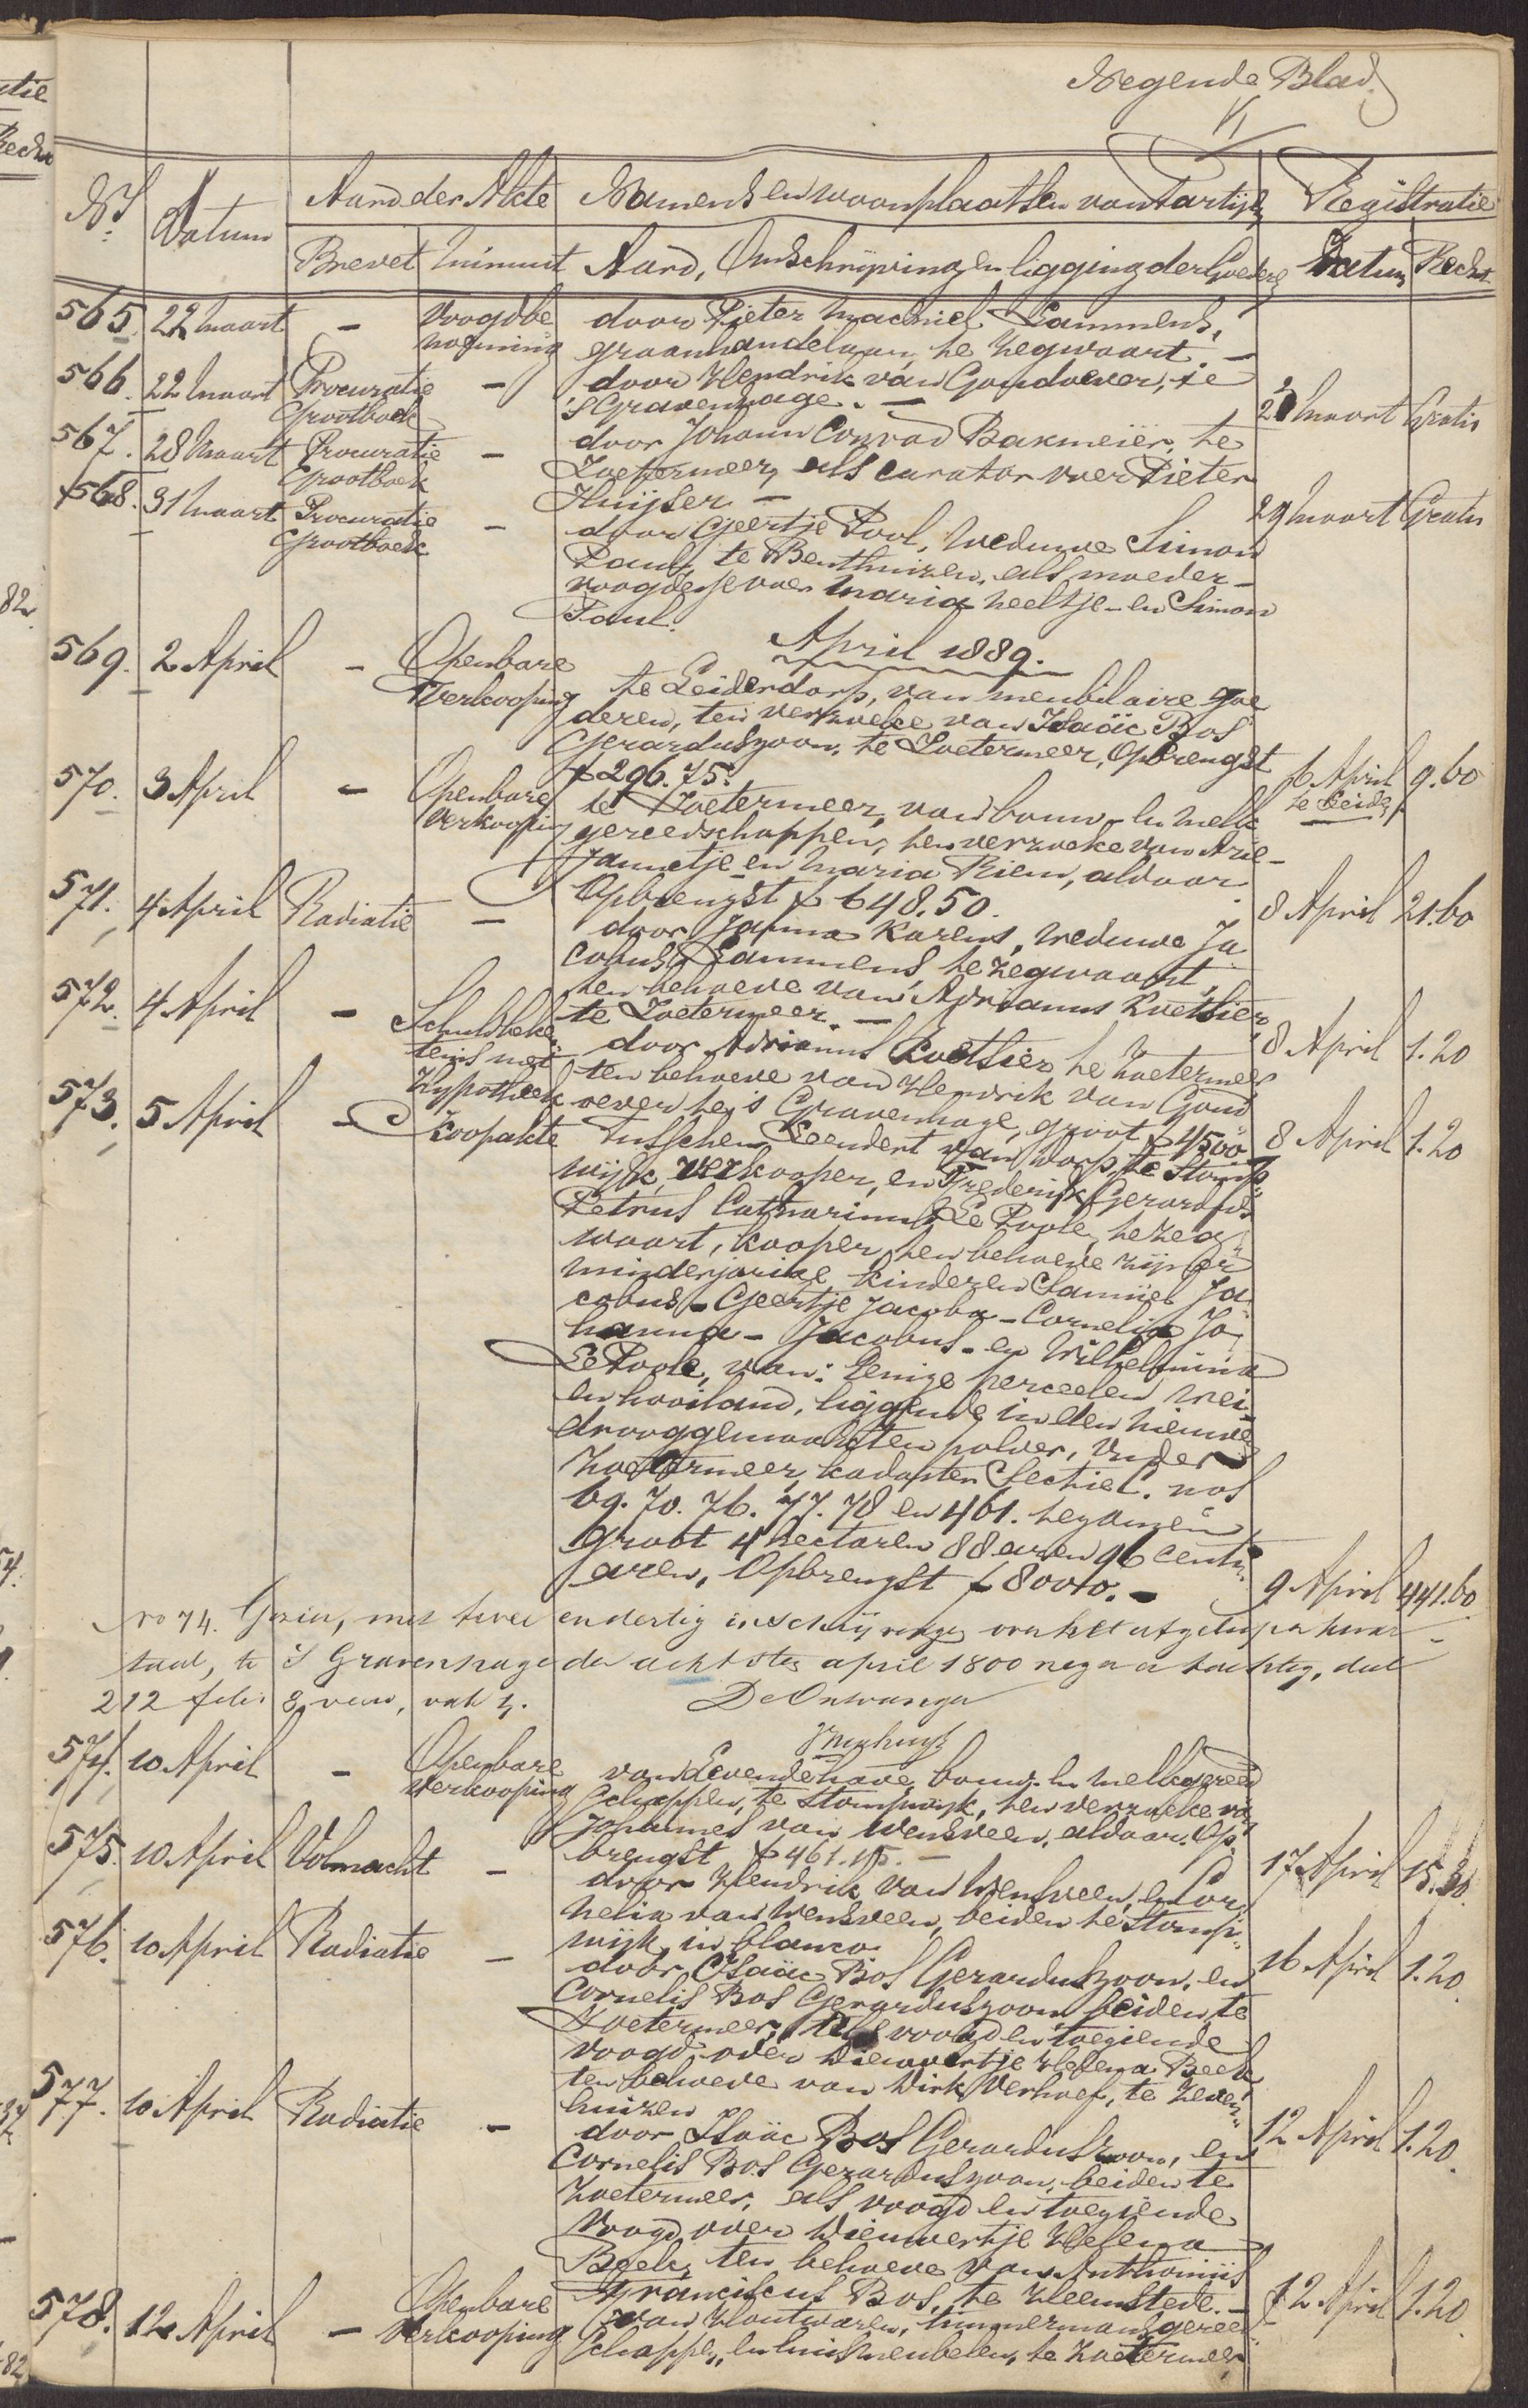 Negende Blad.
No. Datum Aard der Akte Namen en woonplaatsen van Partijen Registratie
Brevet Minuut Aard, Omschrijving en ligging der Goederen Datum Recht
565. 22 Maart - Voogdbe door Pieter Machiel Lammens,
noeming graanhandelaar, te Zegwaart. -
566. 22 Maart Procuratie - door Hendrik van Goudoever, te
Grootboek 'sGravenhage. - Maart Gratis
567. 28 Maart Procuratie - door Johann Conrad Bakmeier, te
Grootboek Zoetermeer, als curator over Pieter
Huijser - 29 Maart Gratis
568. 31 Maart Procuratie - door Geertje Pool, weduwe Simon
Grootboek Paul, te Benthuizen, als moeder-
voogdesse over Maria Neeltje - en Simon
Paul.
April 1889.
569. 2 April - Openbare te Leiderdorp, van meubilaire goe
Verkooping deren, ten verzoeke van Isaäc Bos
Gerarduszoon, te Zoetermeer, Opbrengst
f 296.75. 6 April 9.60
te Leiden
570. 3 April - Openbare te Zoetermeer, van bouw- en melk
Verkooping gereedschappen, ten verzoeke van Arie-
Jannetje en Maria Riem, aldaar
Opbrengst f 648.50. 8 April 21.60
571. 4 April Radiatie - door Janna Karens, weduwe Ja
cobus Lammens, te Zegwaart,
ten behoeve van Adrianus Koetsier,
te Zoetermeer. - 8 April 1.20
572. 4 April - Schuldbeke door Adrianus Koetsier te Zoetermeer
tenis met ten behoeve van Hendrik van Goud
Hypotheek oever te 's Gravenhage, groot f 4500 8 April 1.20
573. 5 April - Koopakte Tusschen Leendert van Dorp, te Stomp
wijk, verkooper, en Frederik Gerardus
Petrus Catharinus Le Poole, te Zeg
waart, kooper, ten behoeve zijner
minderjarige kinderen Samuel Ja
cobus - Geertje Jacoba - Cornelia Jo
hanna - Jacobus - en Wilhelmina
Le Poole, van: Eenige perceelen wei
en hooiland, liggende in den nieuwe
drooggemaakten polder, onder
Zoetermeer, kadaster Sectie C. nos
69. 70. 76. 77. 78 en 461. te zamen
groot 4 hectaren 88 aren 96 centi
aren, Opbrengst f 8000. - 9 April 441.60
No 74. Gezien, met twee en dertig inschrijvingen over het afgeloopen kwar
taal, te 's Gravenhage den achtsten april 1800 negen en tachtig, deel
212 folio 8 verso, vak 4.
De Ontvanger
574. 10 April - Openbare van Levende have, bouw- en melkgereed
Verkooping schappen, te Stompwijk, ten verzoeke van
Johannes van Wensveen, aldaar. Op
brengst f 461.15. - 17 April 15.30
575. 10 April Volmacht - door Hendrik van Wensveen, en Cor
nelia van Wensveen, beiden te Stomp
wijk, in blanco 16 April 1.20
576. 10 April Radiatie - door Isaäc Bos Gerarduszoon, en
Cornelis Bos Gerarduszoon beiden te
Zoetermeer, als voogd en toeziende
voogd over Diewertje Helena Beek,
ten behoeve van Dirk Verhoef, te Zeven
huizen 12 April 1.20
577. 10 April Radiatie - door Isaäc Bos Gerarduszoon, en
Cornelis Bos Gerarduszoon, beiden te
Zoetermeer, als voogd en toeziende
Voogd over Diewertje Helena
Beek, ten behoeve van Anthonius
Franciscus Bos, te Heemstede. - 12 April 1.20
578. 12 April - Openbare van Houtwaren, timmermansgereed
Verkooping schappen, en huismeubelen, te Zoetermeer